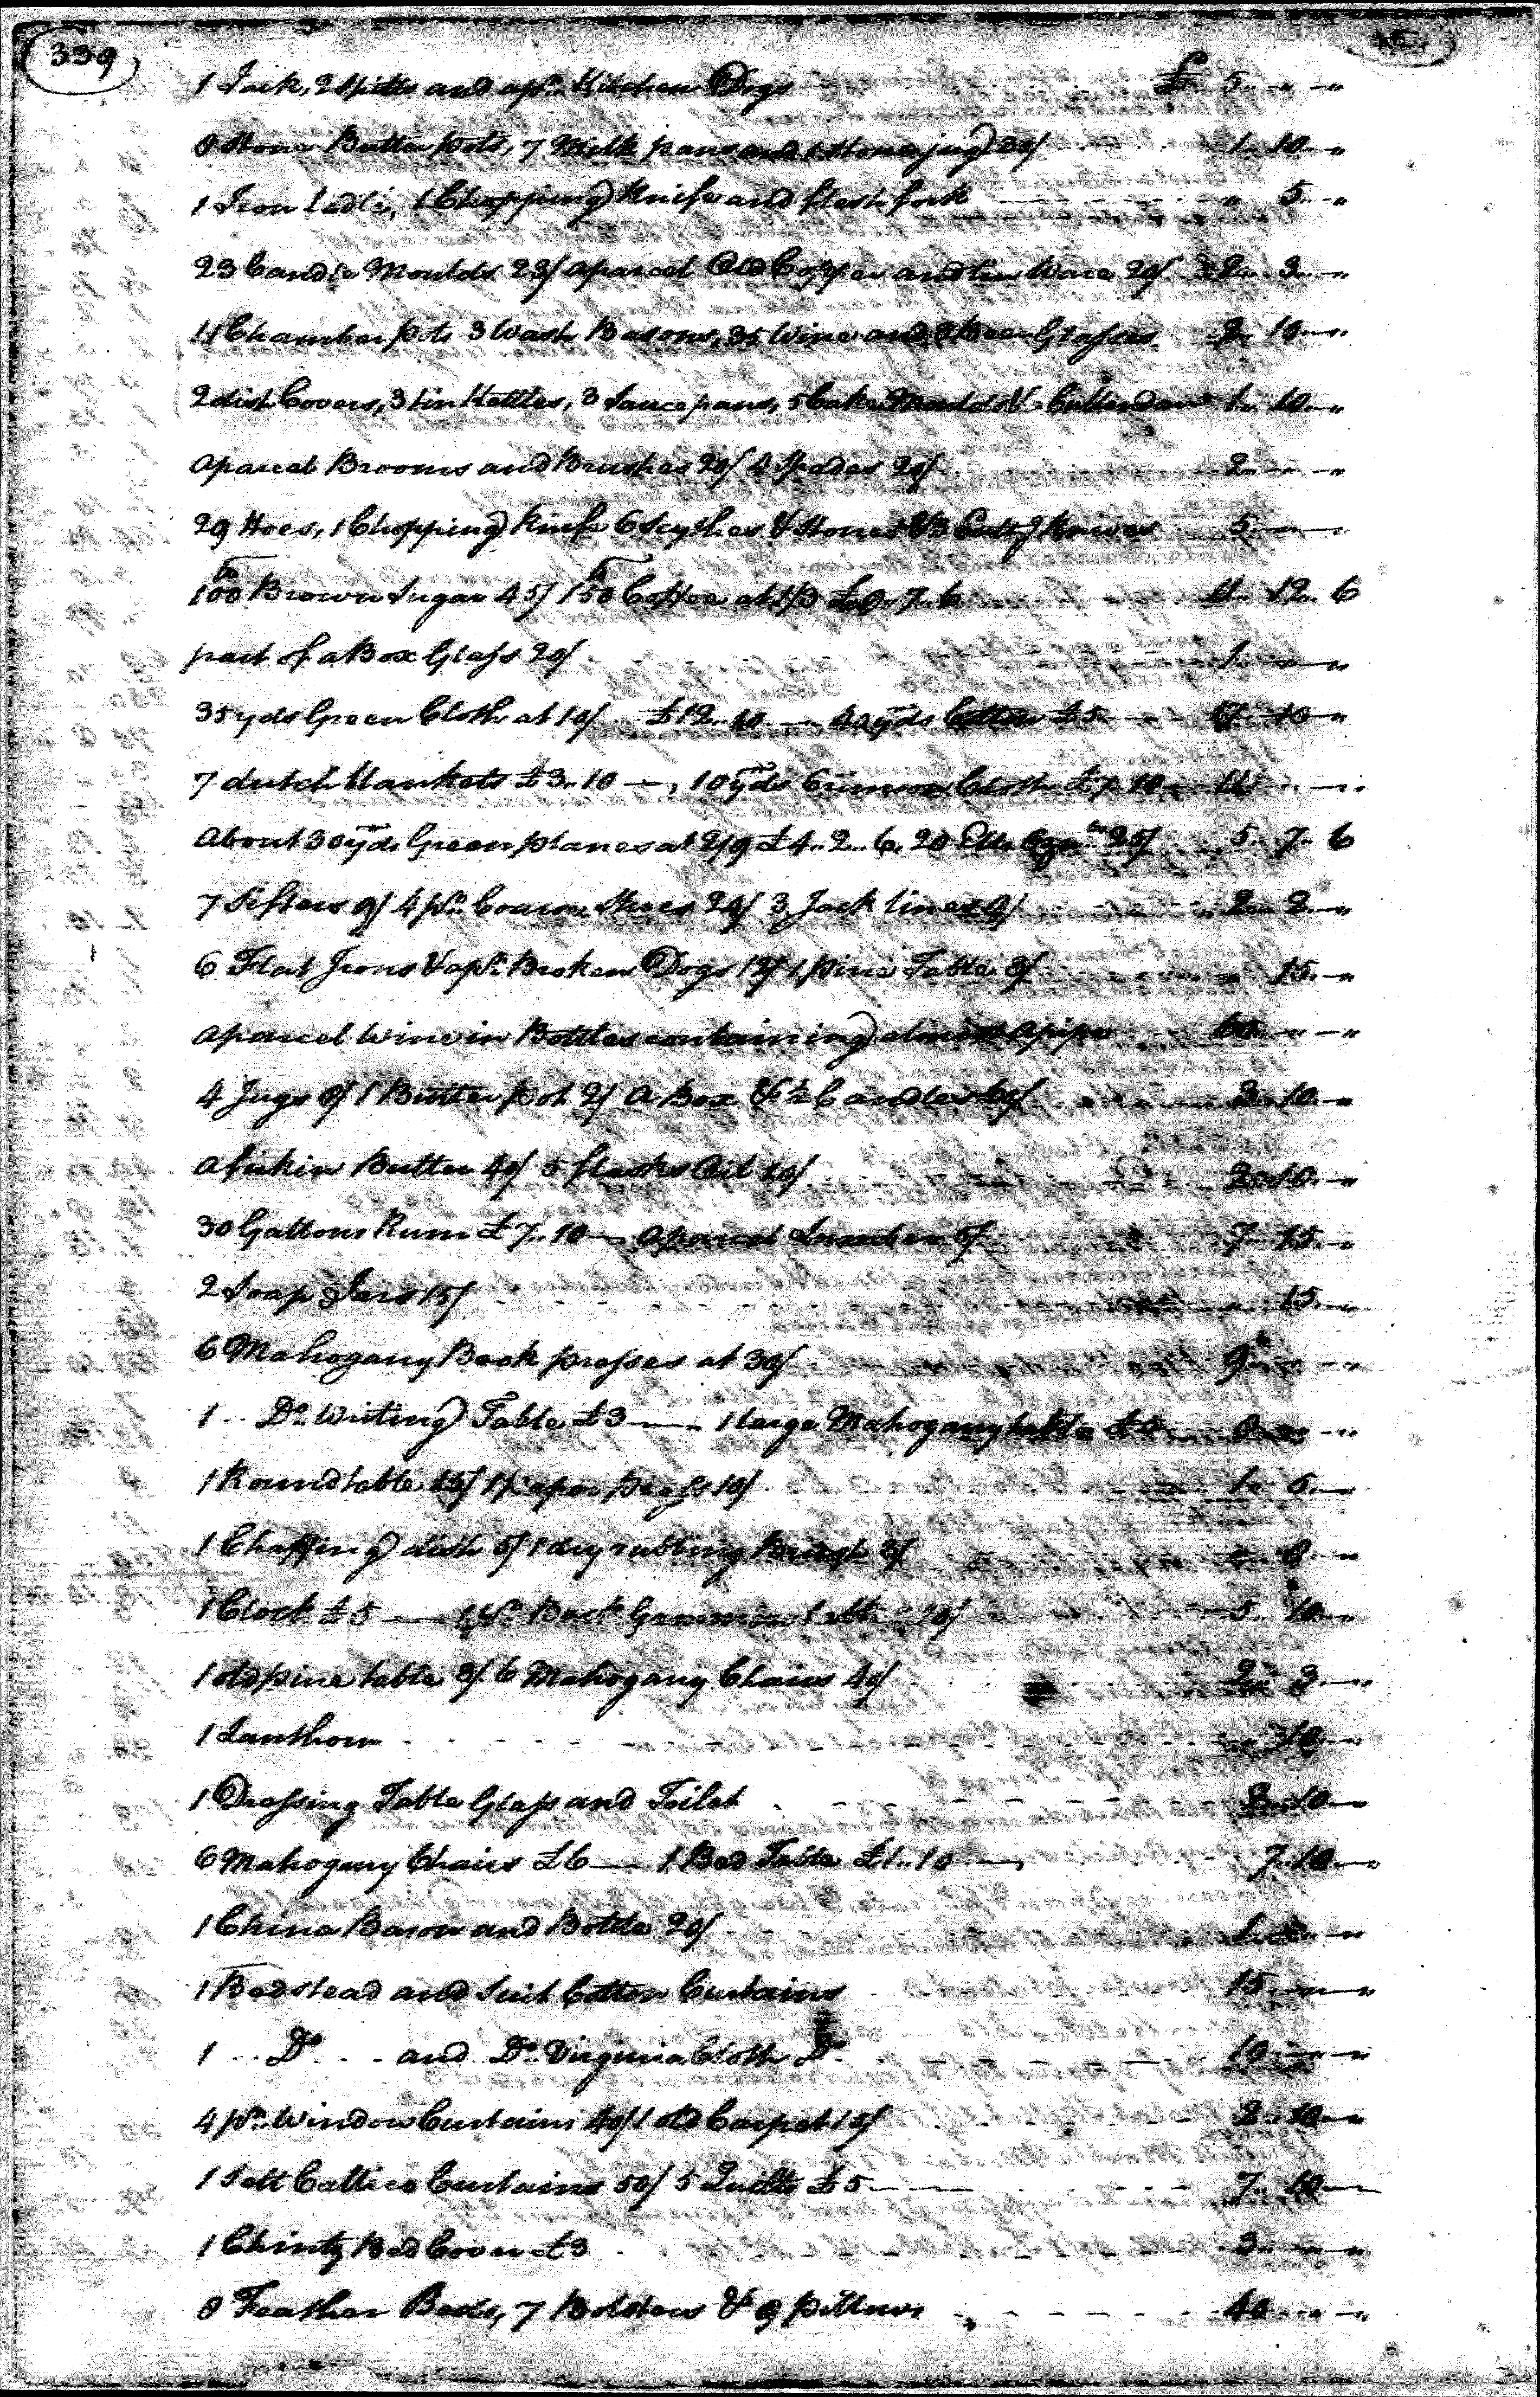 339
1 Jack, 2 Spitts and a pr. Kitchen Dogs £ 5 .. " .. "
8 Stone Butter pots, 7 Milk pans and 1 Stone jug 30/ 1 .. 10 .. "
1 Iron Ladle, 1 Chopping Knife and flesh fork " 5 .. "
23 Candle Moulds 23/ a parcel Old Copper and tin Ware 20/ 2 .. 3 .. "
11 Chamber pots 3 Wash Basons, 35 Wine and Beer Glasses 2 .. 10 .. "
2 dish Covers, 3 tin Kettles, 3 Sauce pans, 5 Cake Moulds & Cullendar 1 .. 10 .. "
a parcel Brooms and Brushes 20/ 4 Spades 20/ 2 .. " .. "
29 Hoes, 1 Chopping Knife 6 Scythes & Stones & 3 Cuttg Knives 5
100 lb Brown Sugar 45/ 150 lb Coffee at 1/3 £9 .. 7 .. 6 11 .. 12 .. 6
part of a Box Glass 20/ 1 .. " .. "
35 yds Green Cloth at 10/ £12 .. 10 — 40 yds Cotton £5 17 .. 10 .. "
7 dutch blankets £3 .. 10 —, 10 yds Crimson Cloth £7 .. 10 11 .. " .. "
About 30 yds Green planes at 2/9 £4 .. 2 .. 6, 20 Ells 25/ 5 .. 7 .. 6
7 Sifters 9/ 4 pr. Coarse Shoes 24/ 3 Jack lines 9/ 2 .. 2 .. "
6 Flat Irons & a pr. Broken Dogs 12/ 1 pine Table 3/ " 15 .. "
a parcel Wine in Bottles containing almost a pipe 60 .. " .. "
4 Jugs 8/ 1 Butter pot 2/ a Box & ½ Candles 60/ 3 .. 10 .. "
a firkin Butter 40/ 5 flasks Oil 10/ 2 .. 10 .. "
30 Gallons Rum £7 .. 10 — a parcel Lumber 5/ 7 .. 15 .. "
2 Soap Jars 15/ " 15 .. "
6 Mahogany Book presses at 30/ 9 .. " .. "
1 .. Do. Writing Table £3 — 1 large Mahogany table
1 Round table 15/ 1 paper press 10/ 1 .. 5 .. "
1 Chaffing dish 5/ 1 dry rubbing Brush 3/ " 8 .. "
1 Clock £5 — 1 pr. Back Gammon table 10/ 5 .. 10 .. "
1 old pine table 3/ 6 Mahogany Chairs 40/ 2 .. 3 .. "
1 Lanthorn " 10 .. "
1 Dressing Table Glass and Toilet 10 .. "
6 Mahogany Chairs £6 — 1 Bed Table £1 .. 10 — 7 .. 10 .. "
1 China Bason and Bottle 20/ 1 .. " .. "
1 Bedstead and Suit Cotton Curtains 15 .. " .. "
1 .. Do .. and Do. Virginia Cloth Do. 10 .. " .. "
4 pr. Window Curtains 40/ 1 old Carpet 15/
1 Sett Callico Curtains 50/ 5 Quilts £5 — 7 .. 10 .. "
1 Chintz Bed Cover £3 3 .. " .. "
8 Feather Beds, 7 Bolsters & 9 pillows 40 .. " .. "